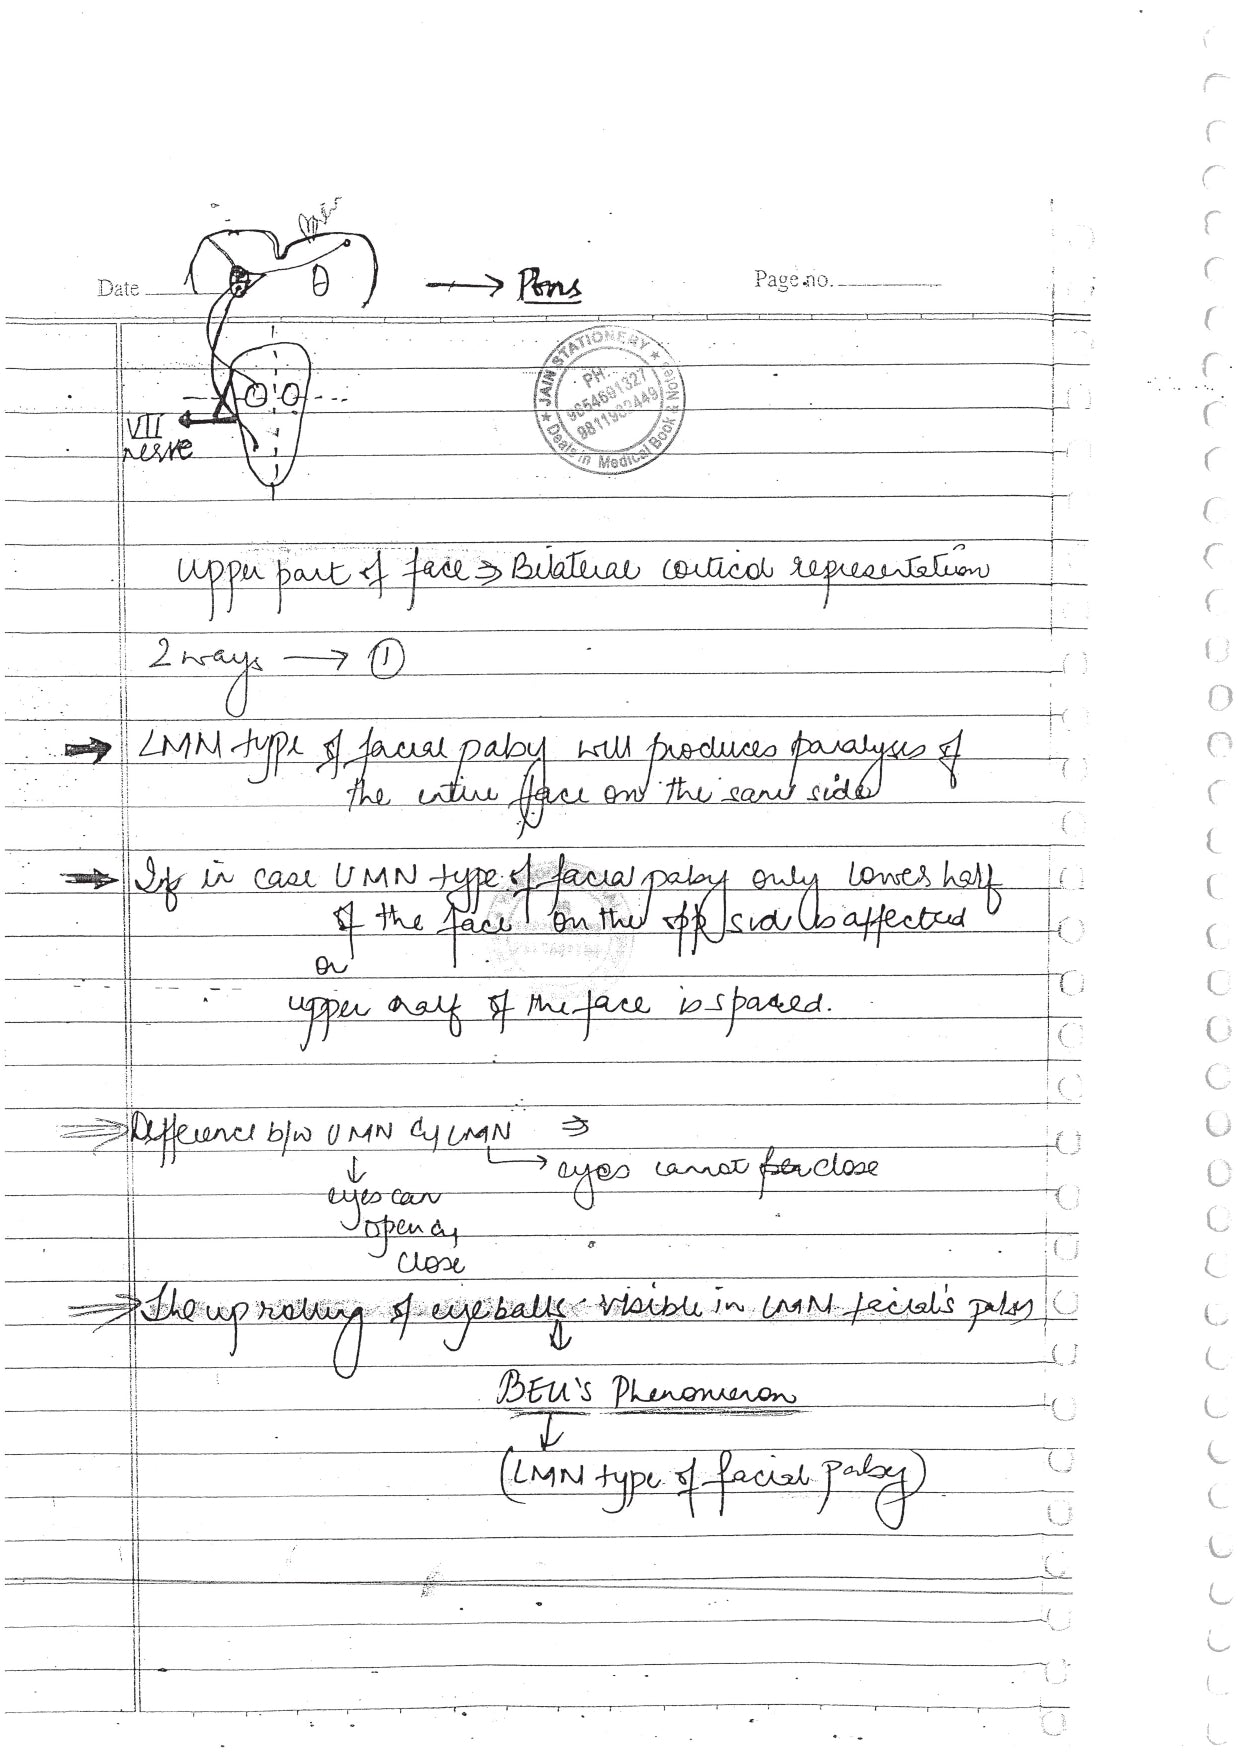 Date
→ Pons
Page no.
VII
nerve
JAIN STATIONERY
PH.
9811982449
Deals in Medical Book & Notes
Upper part of face ⇒ Bilateral cortical representation
2 ways → ①
→ LMN type of facial palsy will produces paralysis of
the entire face on the same side
→ If in case UMN type of facial palsy only lower half
of the face on the opp side is affected
or
upper half of the face is spared.
⇒ Difference b/w UMN & LMN ⇒
→ eyes cannot close
↓
eyes can
open &
close
⇒ The up rolling of eyeballs visible in LMN facial's palsy
↓
BELL'S Phenomenon
↓
(LMN type of facial palsy)